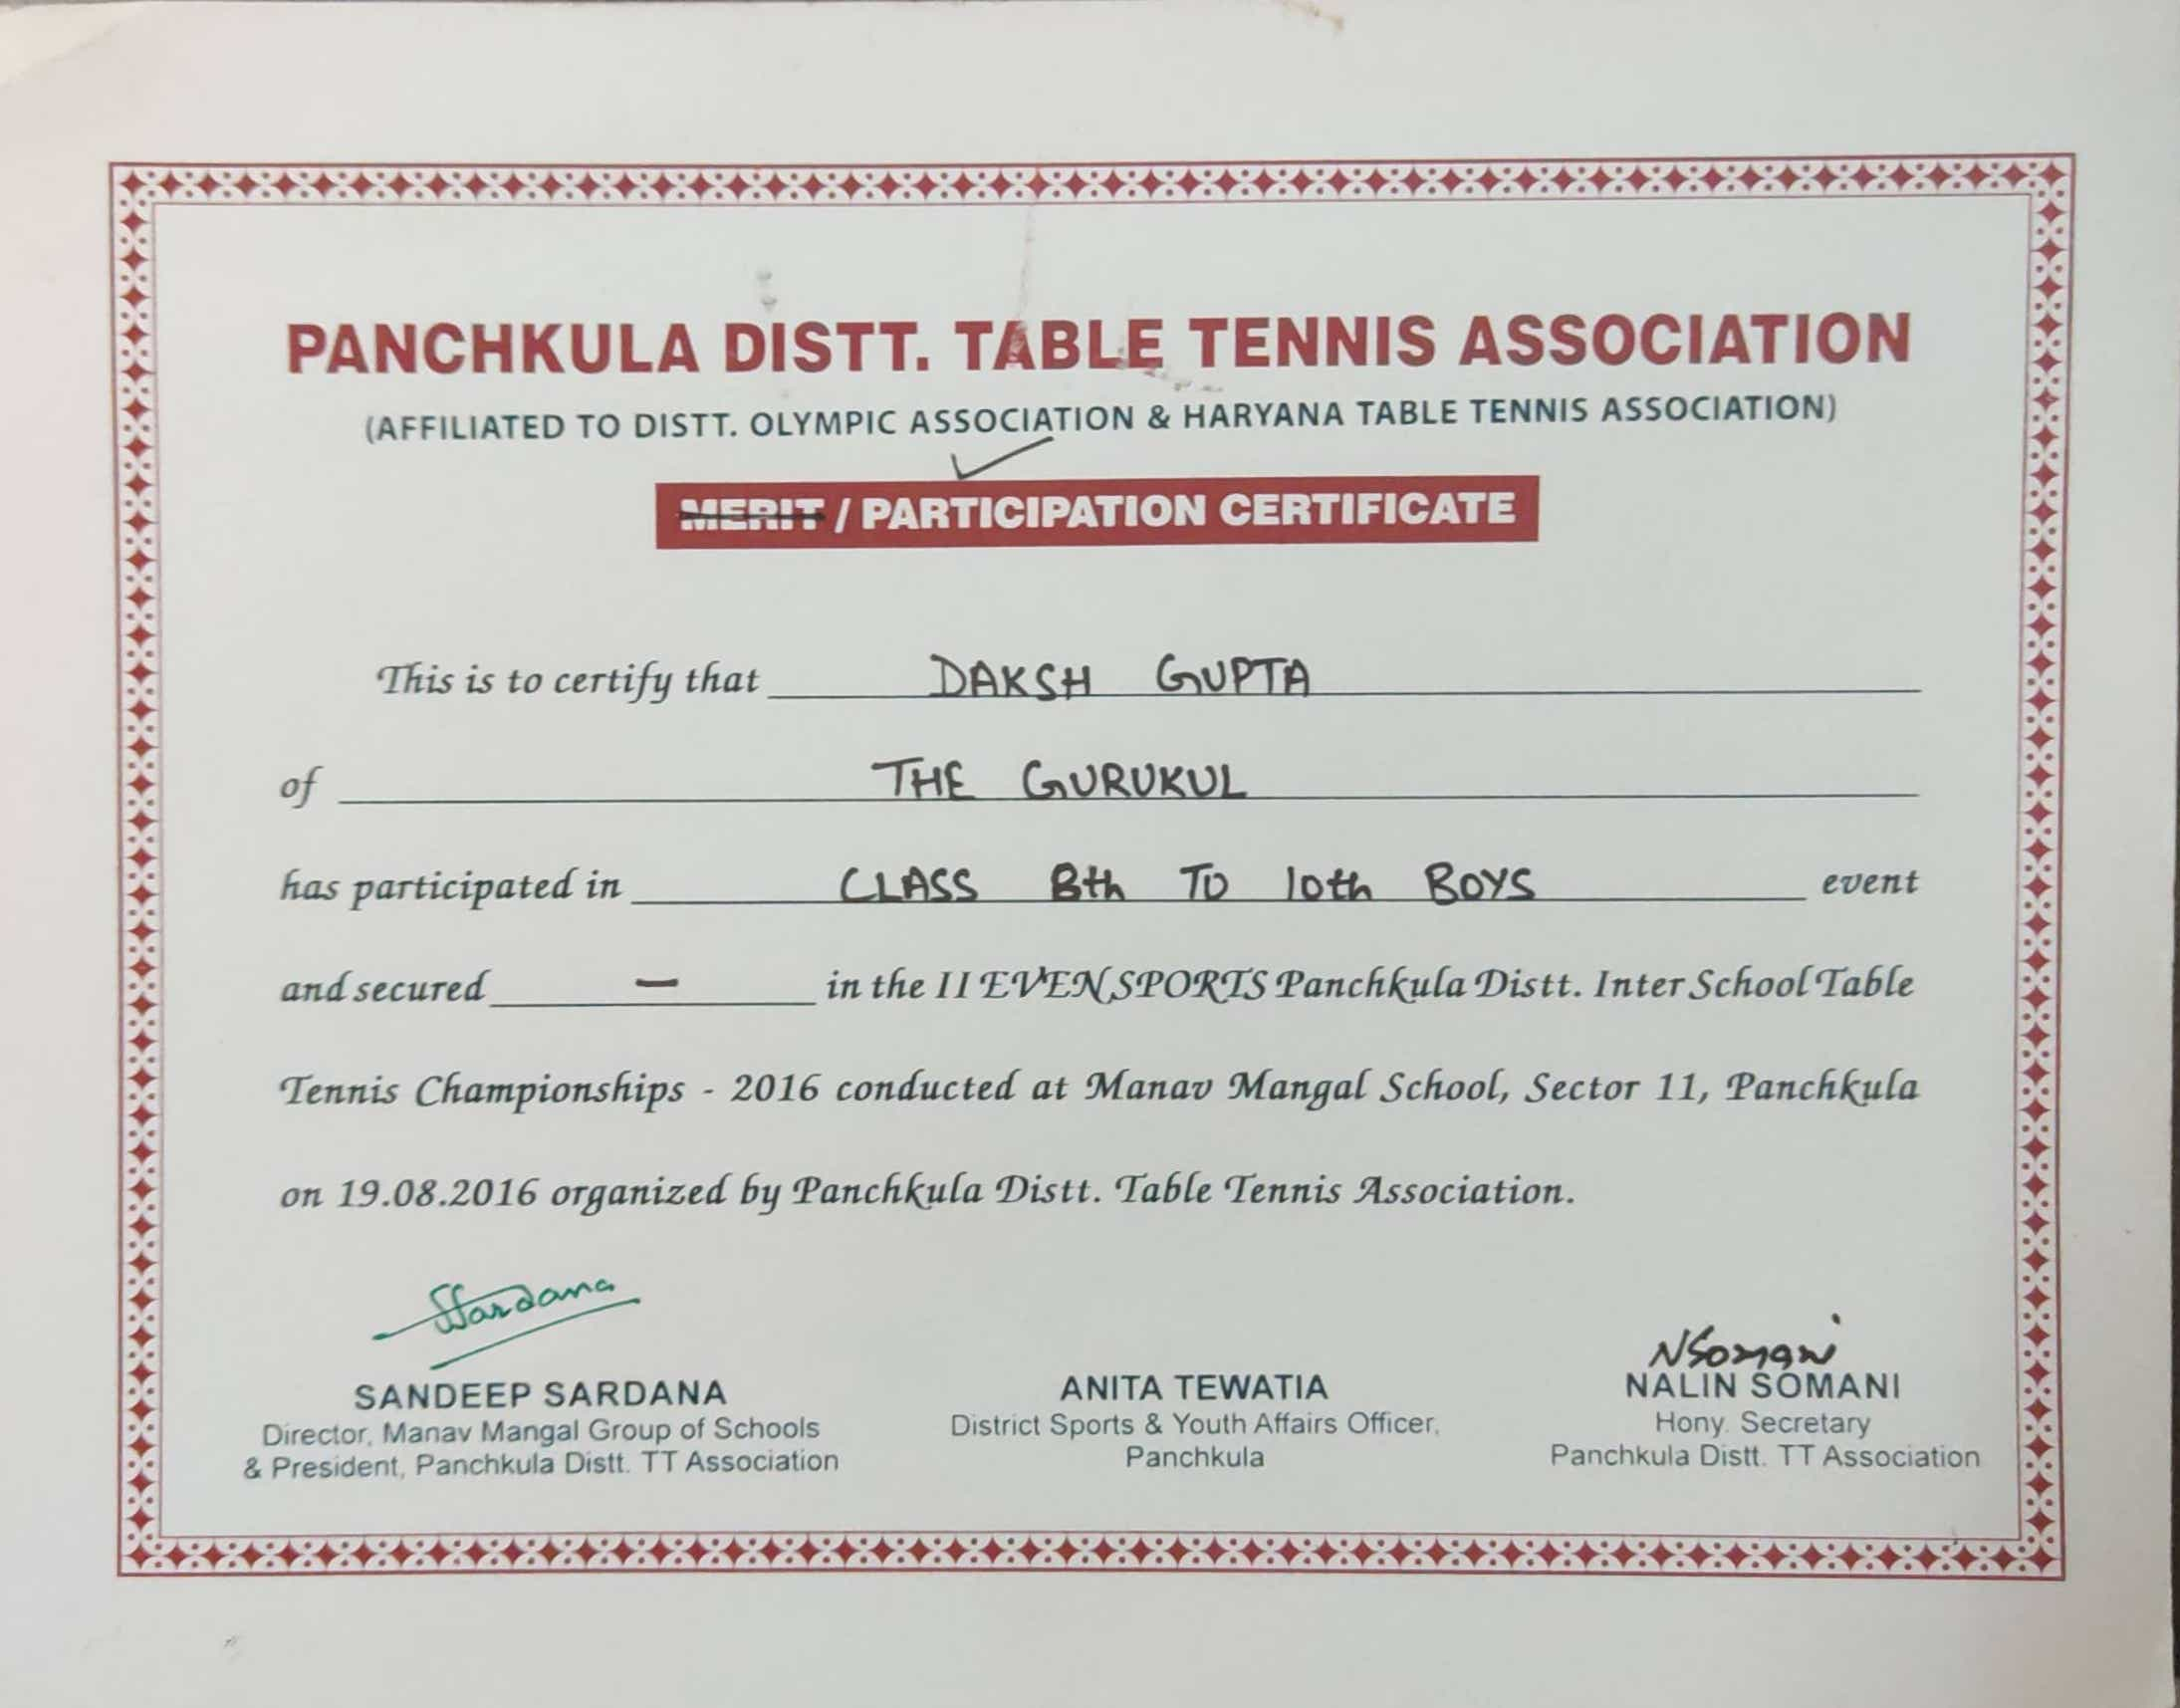 PANCHKULA DISTT. TABLE TENNIS ASSOCIATION
(AFFILIATED TO DISTT. OLYMPIC ASSOCIATION & HARYANA TABLE TENNIS ASSOCIATION)
MERIT / PARTICIPATION CERTIFICATE
This is to certify that DAKSH GUPTA
of THE GURUKUL
has participated in CLASS 8th TO 10th BOYS event
and secured — in the II EVEN SPORTS Panchkula Distt. Inter School Table
Tennis Championships - 2016 conducted at Manav Mangal School, Sector 11, Panchkula
on 19.08.2016 organized by Panchkula Distt. Table Tennis Association.
SSardana
SANDEEP SARDANA
Director, Manav Mangal Group of Schools
& President, Panchkula Distt. TT Association
ANITA TEWATIA
District Sports & Youth Affairs Officer,
Panchkula
NSomani
NALIN SOMANI
Hony. Secretary
Panchkula Distt. TT Association